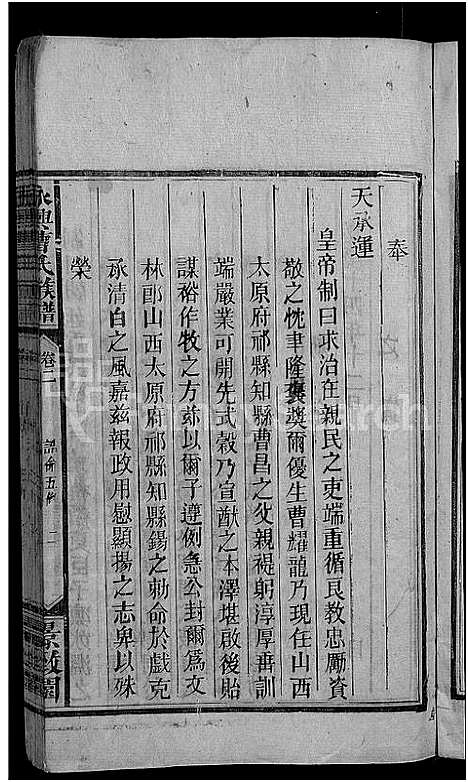 奉
天承運
皇帝制曰求治在親民之吏端重循良教忠勵資
敬之忱聿隆褒奬爾優生曹耀龍乃現任山西
太原府祁縣知縣曹昌之父親褆躬淳厚垂訓
端嚴業可開先式穀乃宣猷之本澤堪啟後貽
謀裕作牧之方茲以爾子遵例急公封爾爲文
林郎山西太原府祁縣知縣錫之勅命於戲克
承清白之風嘉茲報政用慰顯揚之志奥以殊
榮
永興曹氏族譜
卷二
誥命五修
二
景敬閣